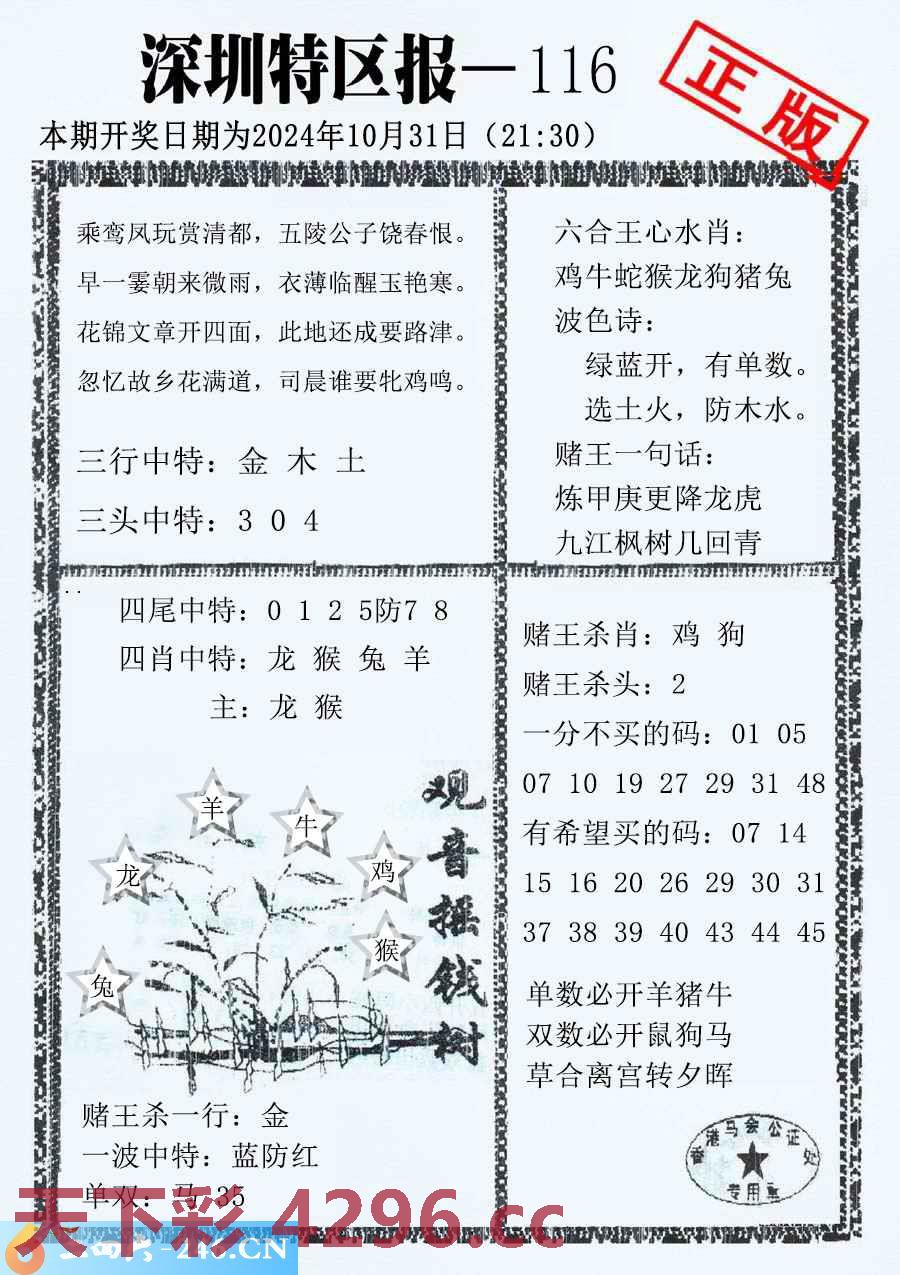 深圳特区报—116
正版
本期开奖日期为2024年10月31日（21:30）
乘鸾凤玩赏清都，五陵公子饶春恨。
早一霎朝来微雨，衣薄临醒玉艳寒。
花锦文章开四面，此地还成要路津。
忽忆故乡花满道，司晨谁要牝鸡鸣。
三行中特：金 木 土
三头中特：3 0 4
六合王心水肖：
鸡牛蛇猴龙狗猪兔
波色诗：
绿蓝开，有单数。
选土火，防木水。
赌王一句话：
炼甲庚更降龙虎
九江枫树几回青
四尾中特：0 1 2 5防7 8
四肖中特：龙 猴 兔 羊
主：龙 猴
羊
牛
龙
鸡
猴
兔
观音摇钱树
赌王杀一行：金
一波中特：蓝防红
单双：马 35
赌王杀肖：鸡 狗
赌王杀头：2
一分不买的码：01 05
07 10 19 27 29 31 48
有希望买的码：07 14
15 16 20 26 29 30 31
37 38 39 40 43 44 45
单数必开羊猪牛
双数必开鼠狗马
草合离宫转夕晖
香港马会公证处
专用章
天下彩 4296.cc
246.CN